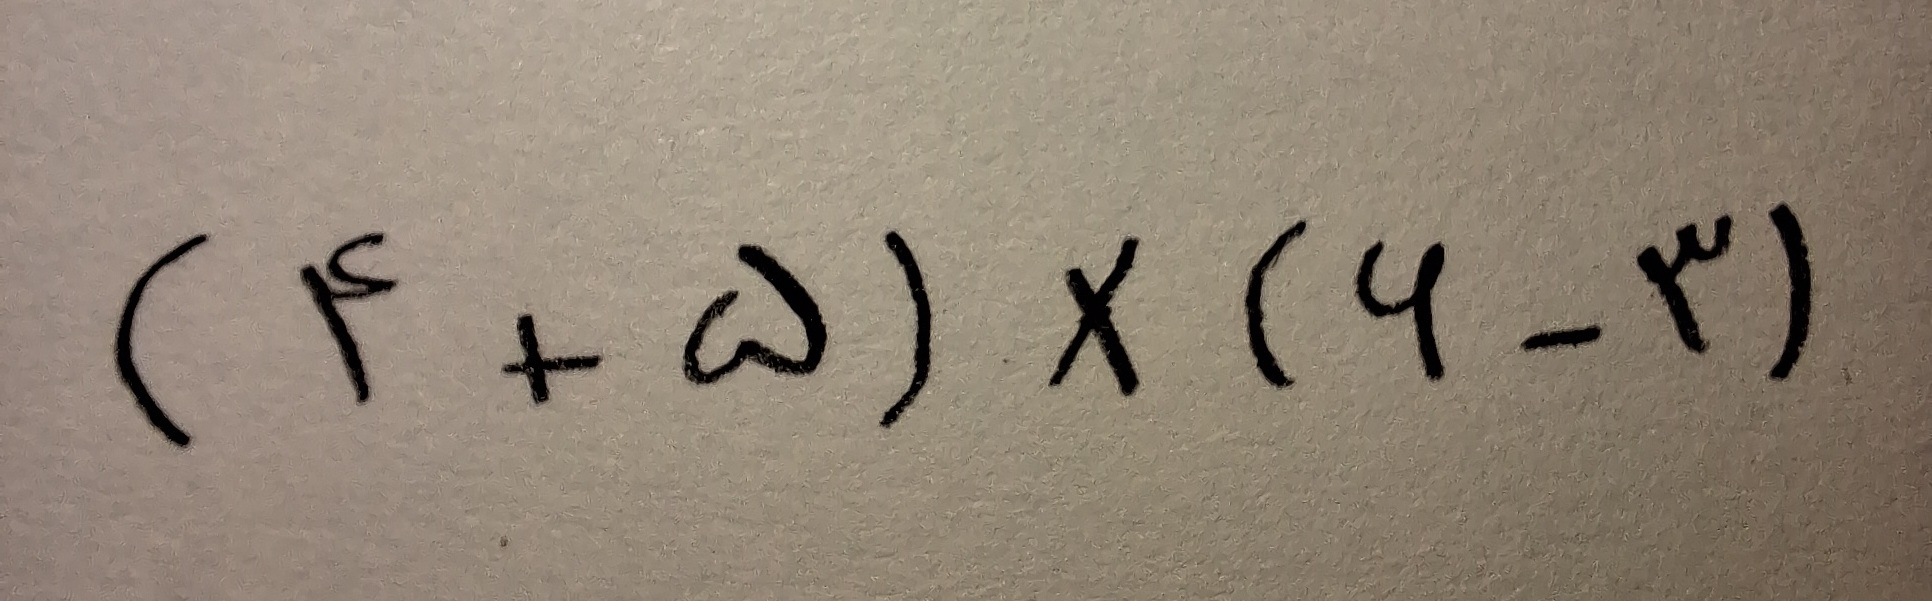 (۴ + ۵) × (۶ - ۳)